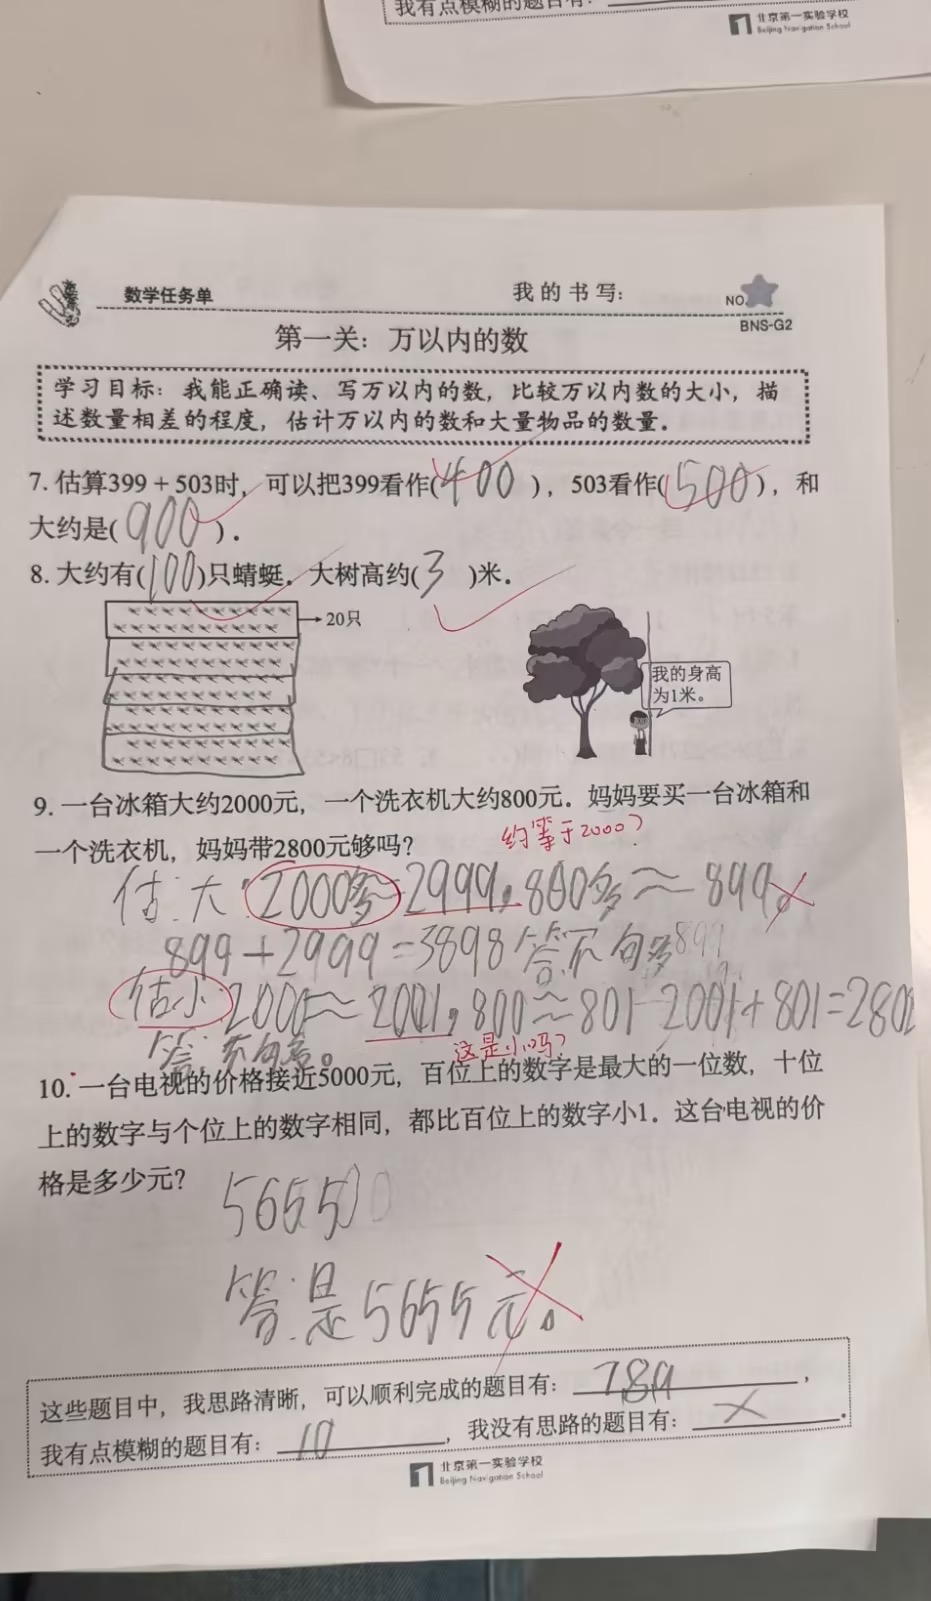 我有点模糊的题目有:
北京第一实验学校
Beijing Navigation School
数学任务单
我的书写:
NO.
BNS-G2
第一关：万以内的数
学习目标：我能正确读、写万以内的数，比较万以内数的大小，描
述数量相差的程度，估计万以内的数和大量物品的数量。
7. 估算399 + 503时，可以把399看作(400)，503看作(500)，和
大约是(900)．
8. 大约有(100)只蜻蜓．大树高约(3)米．
20只
我的身高
为1米。
9. 一台冰箱大约2000元，一个洗衣机大约800元。妈妈要买一台冰箱和
一个洗衣机，妈妈带2800元够吗?
约等于2000?
估:大:2000多≈2999，800多≈899。
899+2999=3898 答:不句多 899
估小:2000≈2001，800≈801 2001+801=2802
答:不句多。
这是小吗?
10. 一台电视的价格接近5000元，百位上的数字是最大的一位数，十位
上的数字与个位上的数字相同，都比百位上的数字小1．这台电视的价
格是多少元?
5655
答:是5655元。
这些题目中，我思路清晰，可以顺利完成的题目有: 789，
我有点模糊的题目有: 10，我没有思路的题目有: ×．
北京第一实验学校
Beijing Navigation School